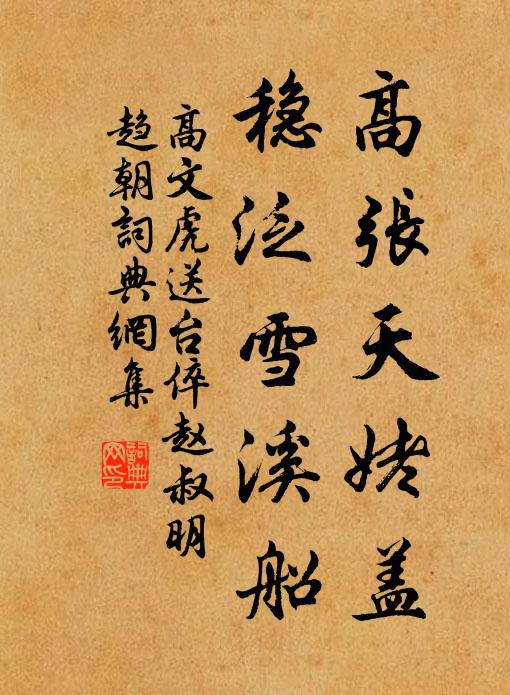 高張天姥蓋
穩泛雪溪船
高文虎送台倅赵叔明
趋朝詞典網集
詞典
网印